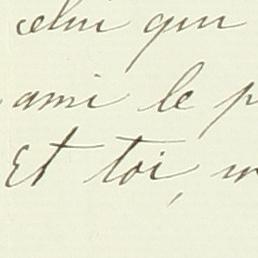 celui qui
ami le p
Et toi,